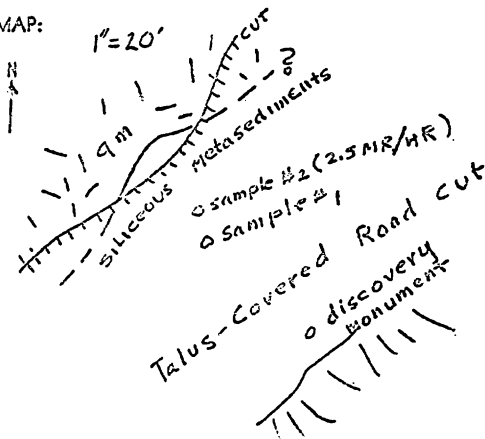 MAP:
1"=20'
N
CUT
?
qm
SILICEOUS METASEDIMENTS
o sample #2 (2.5 MR/HR)
o sample #1
Talus-Covered Road Cut
o discovery
monument